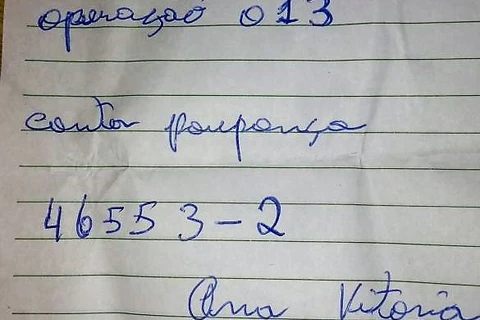 operação 013
conta poupança
46553-2
Ana Vitoria